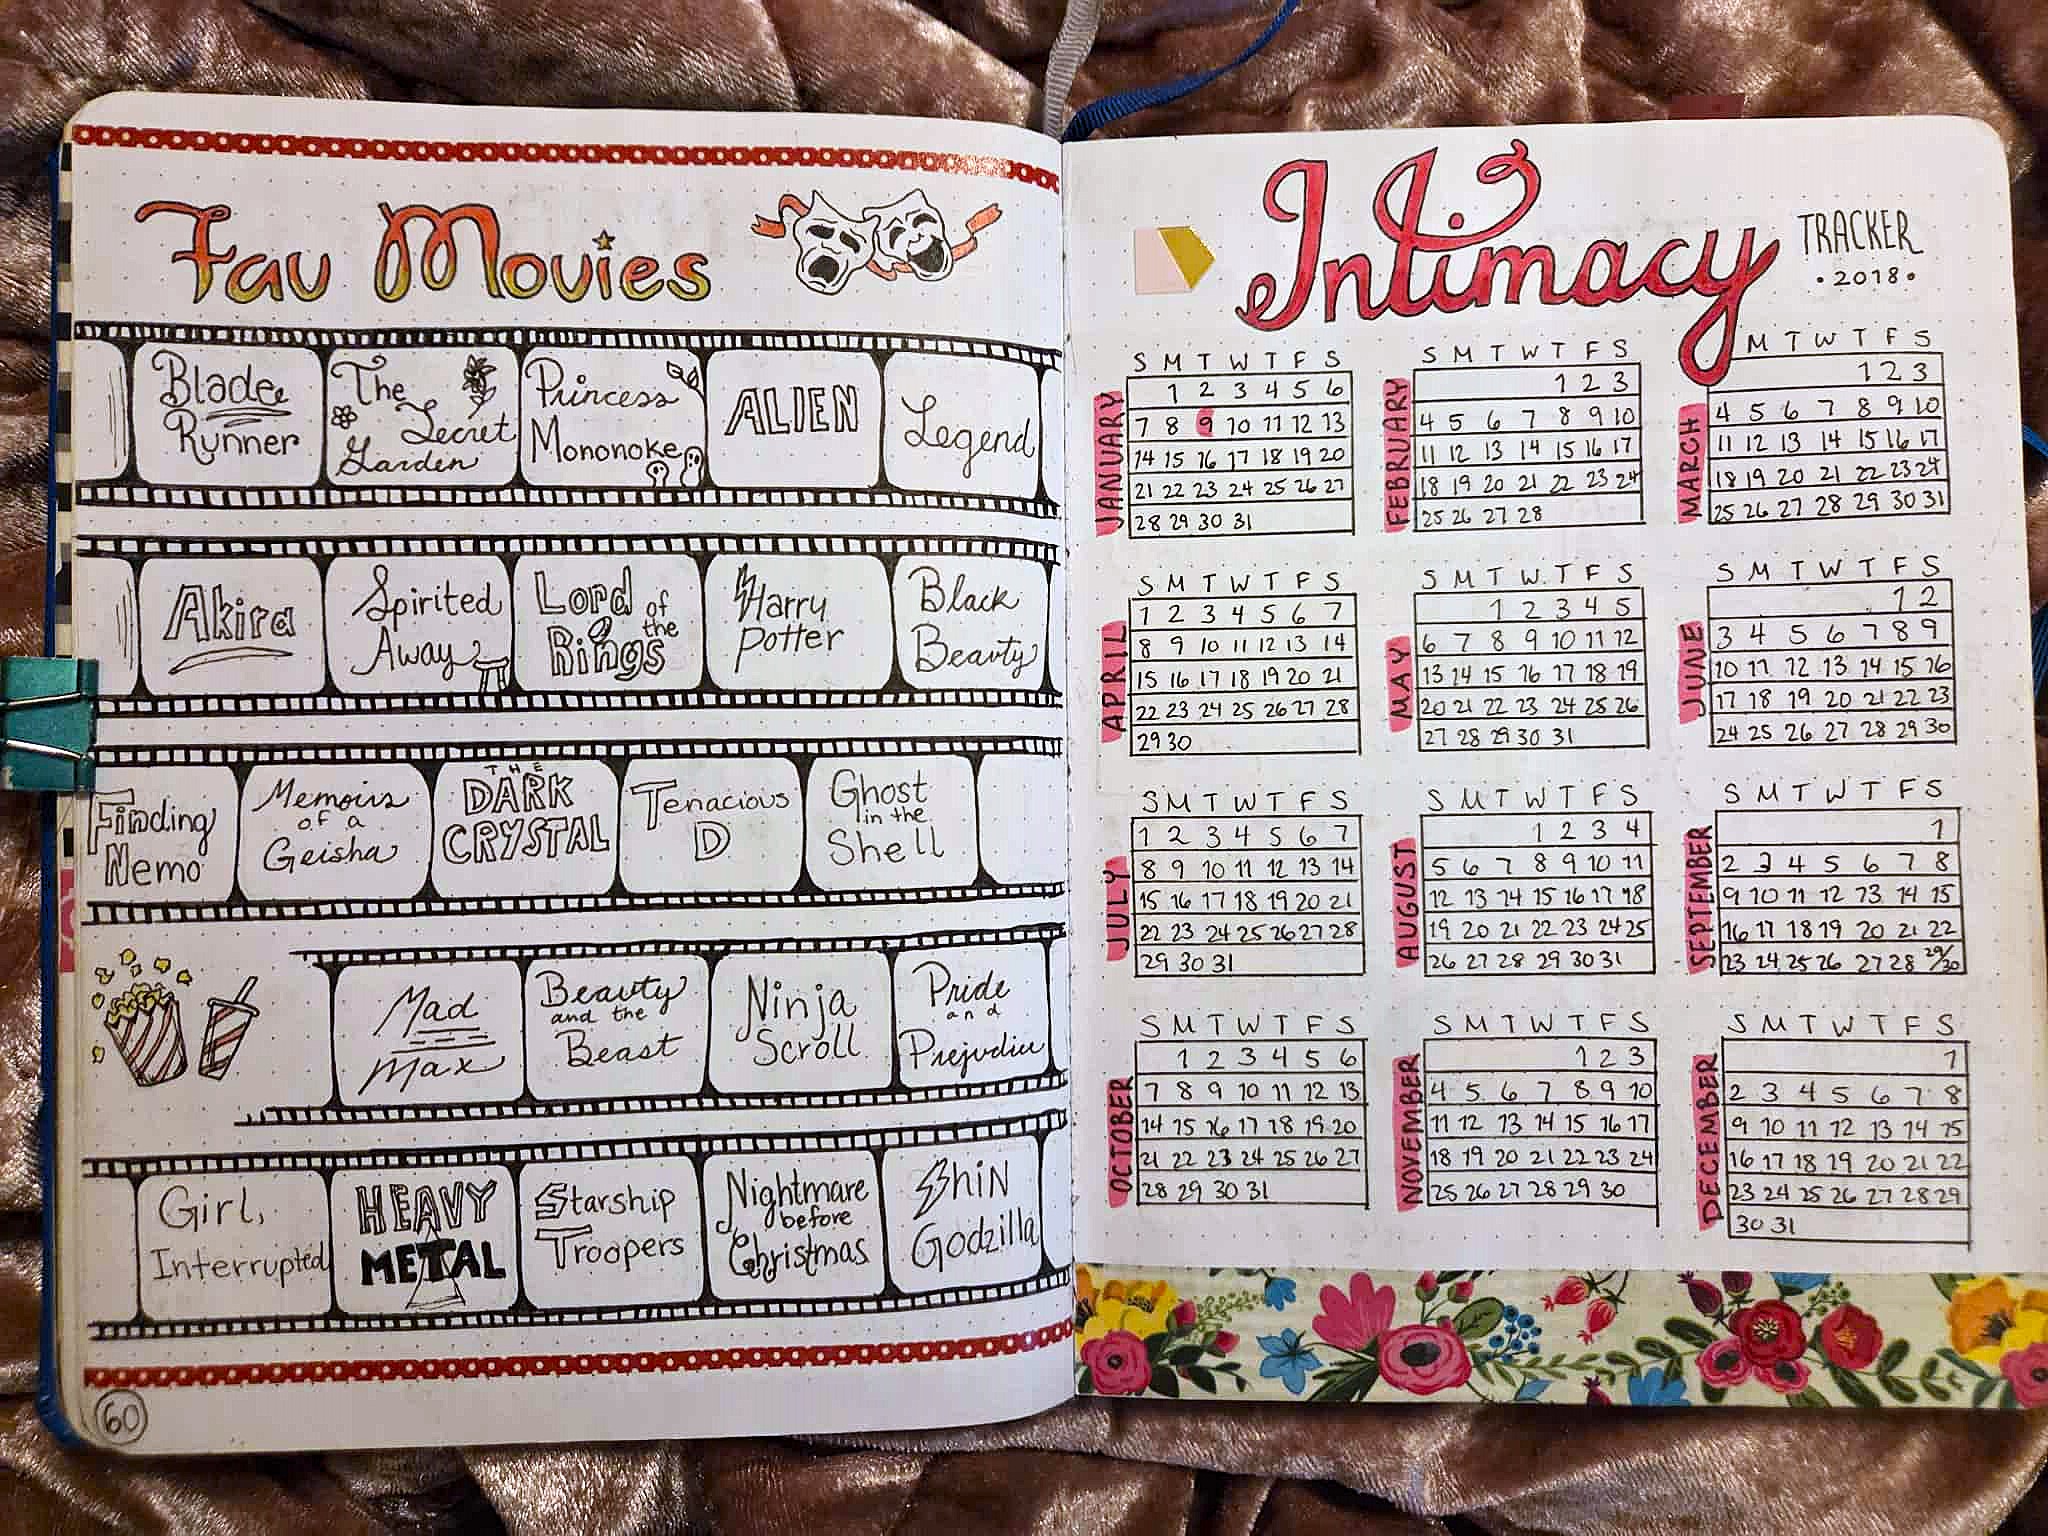 Fav Movies
Blade Runner
The Secret Garden
Princess Mononoke
ALIEN
Legend
Akira
Spirited Away
Lord of the Rings
Harry Potter
Black Beauty
Finding Nemo
Memoirs of a Geisha
THE DARK CRYSTAL
Tenacious D
Ghost in the Shell
Mad Max
Beauty and the Beast
Ninja Scroll
Pride and Prejudice
Girl, Interrupted
HEAVY METAL
Starship Troopers
Nightmare before Christmas
Shin Godzilla
60
Intimacy TRACKER
• 2018 •
JANUARY
S M T W T F S
1 2 3 4 5 6
7 8 9 10 11 12 13
14 15 16 17 18 19 20
21 22 23 24 25 26 27
28 29 30 31
FEBRUARY
S M T W T F S
1 2 3
4 5 6 7 8 9 10
11 12 13 14 15 16 17
18 19 20 21 22 23 24
25 26 27 28
MARCH
M T W T F S
1 2 3
4 5 6 7 8 9 10
11 12 13 14 15 16 17
18 19 20 21 22 23 24
25 26 27 28 29 30 31
APRIL
S M T W T F S
1 2 3 4 5 6 7
8 9 10 11 12 13 14
15 16 17 18 19 20 21
22 23 24 25 26 27 28
29 30
MAY
S M T W T F S
1 2 3 4 5
6 7 8 9 10 11 12
13 14 15 16 17 18 19
20 21 22 23 24 25 26
27 28 29 30 31
JUNE
S M T W T F S
1 2
3 4 5 6 7 8 9
10 11 12 13 14 15 16
17 18 19 20 21 22 23
24 25 26 27 28 29 30
JULY
S M T W T F S
1 2 3 4 5 6 7
8 9 10 11 12 13 14
15 16 17 18 19 20 21
22 23 24 25 26 27 28
29 30 31
AUGUST
S M T W T F S
1 2 3 4
5 6 7 8 9 10 11
12 13 14 15 16 17 18
19 20 21 22 23 24 25
26 27 28 29 30 31
SEPTEMBER
S M T W T F S
1
2 3 4 5 6 7 8
9 10 11 12 13 14 15
16 17 18 19 20 21 22
23 24 25 26 27 28 29/30
OCTOBER
S M T W T F S
1 2 3 4 5 6
7 8 9 10 11 12 13
14 15 16 17 18 19 20
21 22 23 24 25 26 27
28 29 30 31
NOVEMBER
S M T W T F S
1 2 3
4 5 6 7 8 9 10
11 12 13 14 15 16 17
18 19 20 21 22 23 24
25 26 27 28 29 30
DECEMBER
S M T W T F S
1
2 3 4 5 6 7 8
9 10 11 12 13 14 15
16 17 18 19 20 21 22
23 24 25 26 27 28 29
30 31